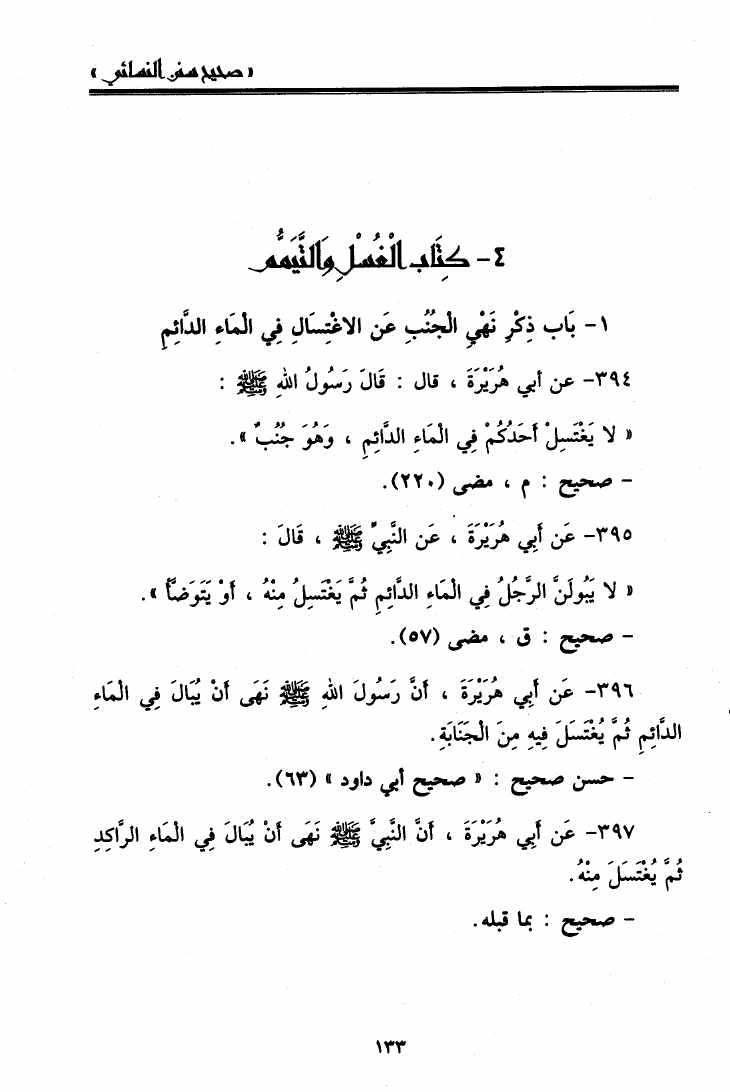 « صحيح سنن النسائي »
٤- كِتَاب الْغُسْلِ وَالتَّيَمُّمِ
١- بَاب ذِكْرِ نَهْيِ الْجُنُبِ عَنِ الاغْتِسَالِ فِي الْمَاءِ الدَّائِمِ
٣٩٤- عن أبي هُرَيْرَةَ ، قال : قَالَ رَسُولُ اللهِ ﷺ :
« لا يَغْتَسِلْ أَحَدُكُمْ فِي الْمَاءِ الدَّائِمِ ، وَهُوَ جُنُبٌ ».
- صحيح : م ، مضى (٢٢٠).
٣٩٥- عَن أَبِي هُرَيْرَةَ ، عَن النَّبِيِّ ﷺ ، قَالَ :
« لا يَبُولَنَّ الرَّجُلُ فِي الْمَاءِ الدَّائِمِ ثُمَّ يَغْتَسِلُ مِنْهُ ، أَوْ يَتَوَضَّأُ ».
- صحيح : ق ، مضى (٥٧).
٣٩٦- عَن أَبِي هُرَيْرَةَ ، أَنَّ رَسُولَ اللهِ ﷺ نَهَى أَنْ يُبَالَ فِي الْمَاءِ
الدَّائِمِ ثُمَّ يُغْتَسَلَ فِيهِ مِنَ الْجَنَابَةِ.
- حسن صحيح : « صحيح أبي داود » (٦٣).
٣٩٧- عَن أَبِي هُرَيْرَةَ ، أَنَّ النَّبِيَّ ﷺ نَهَى أَنْ يُبَالَ فِي الْمَاءِ الرَّاكِدِ
ثُمَّ يُغْتَسَلَ مِنْهُ.
- صحيح : بما قبله.
١٣٣